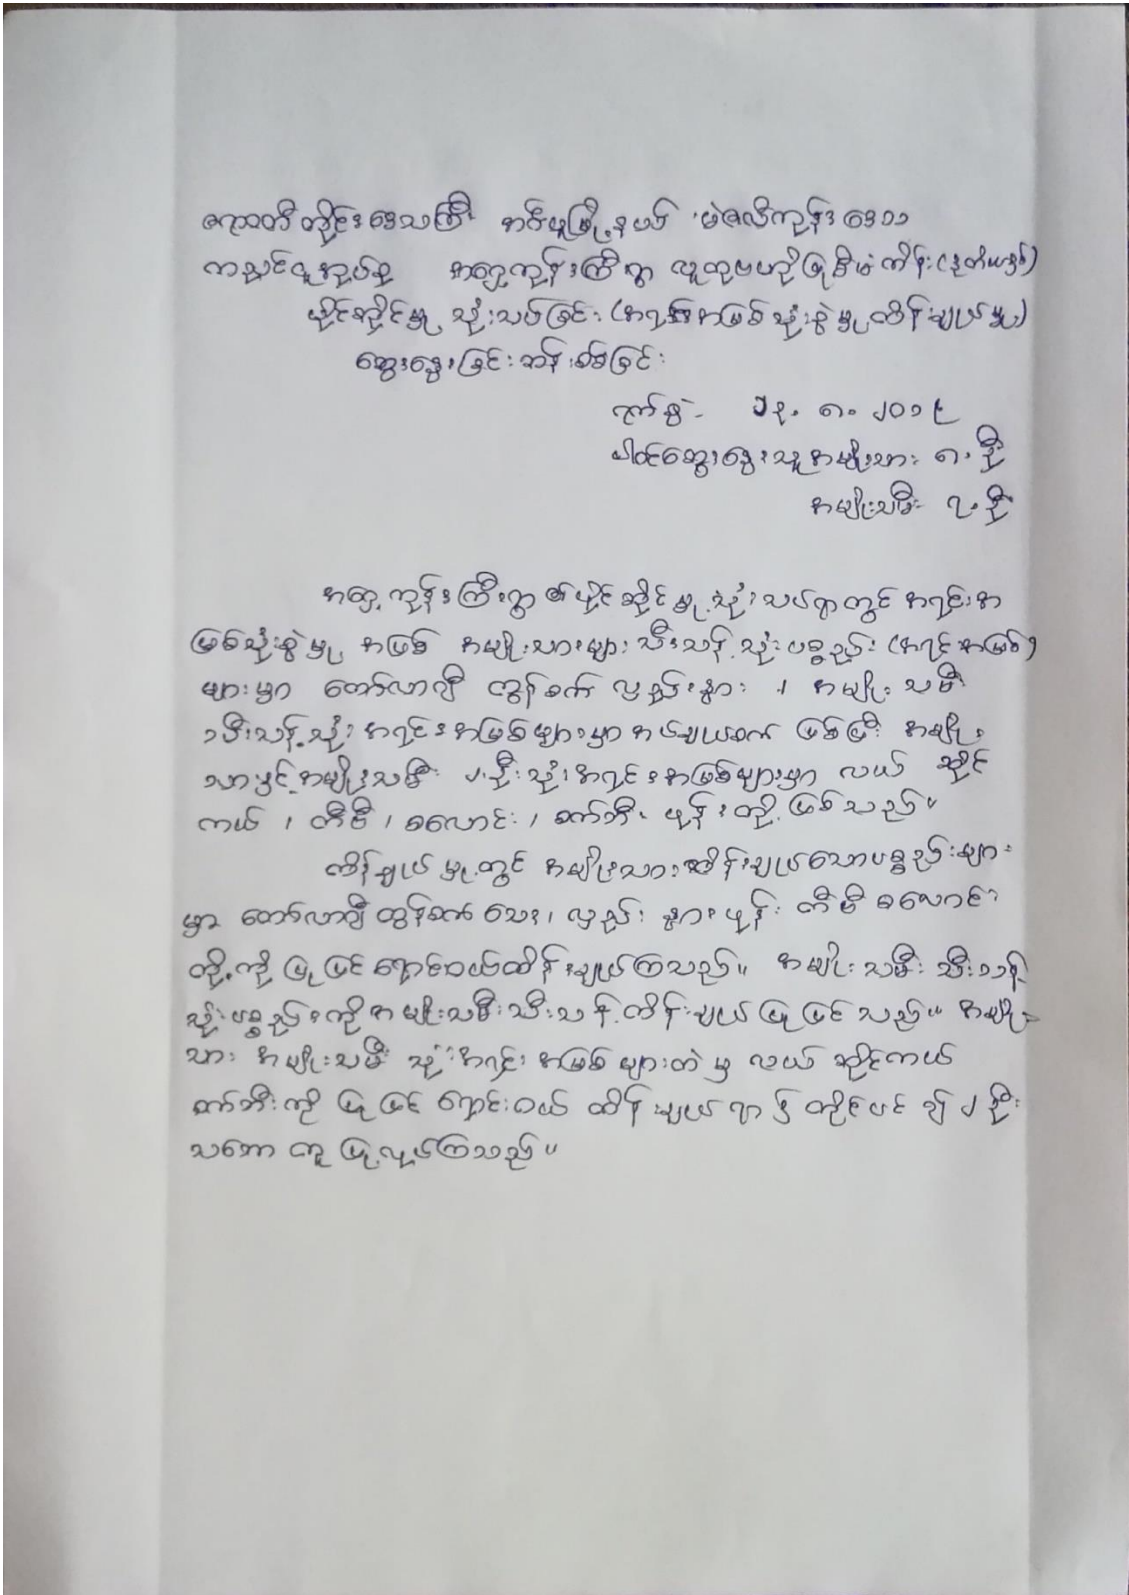 ဧရာဝတီတိုင်းဒေသကြီး အင်္ဂပူမြို့နယ် မဲဇလီကုန်းဒေသ
ကညင်ငူအုပ်စု အရှေ့ကုန်းကြီးရွာ လူထုဗဟိုပြုစီမံကိန်း(ဒုတိယနှစ်)
ပိုင်ဆိုင်မှု သုံးသပ်ခြင်း (အရင်းအမြစ်သုံးစွဲမှု ထိန်းချုပ်မှု)
ဆွေးနွေးခြင်းဆန်းစစ်ခြင်း
ရက်စွဲ- ၁၃. ၈. ၂၀၁၉
ပါဝင်ဆွေးနွေးသူအမျိုးသား ၈.ဦး
အမျိုးသမီး ၇.ဦး
အရှေ့ကုန်းကြီးရွာ၏ပိုင်ဆိုင်မှုသုံးသပ်ရာတွင် အရင်းအ
မြစ်သုံးစွဲမှု အဖြစ် အမျိုးသားများသီးသန့်သုံးပစ္စည်း (အရင်းအမြစ်)
များမှာ တော်လာဂျီ ထွန်စက် လှည်းနွား ၊ အမျိုးသမီး
သီးသန့်သုံး အရင်းအမြစ်များမှာ အပ်ချုပ်စက် ဖြစ်ပြီး အမျိုး
သားနှင့်အမျိုးသမီး ၂.ဦးသုံးအရင်းအမြစ်များမှာ လယ် ဆိုင်
ကယ် ၊ တီဗီ ၊ စလောင်း ၊ စက်ဘီး ဖုန်းတို့ဖြစ်သည်။
ထိန်းချုပ်မှုတွင် အမျိုးသားထိန်းချုပ်သောပစ္စည်းများ
မှာ တော်လာဂျီ ထွန်စက် လှည်း နွား ဖုန်း တီဗီ စလောင်း
တို့ကို ပြုပြင်ရောင်းဝယ်ထိန်းချုပ်ကြသည်။ အမျိုးသမီး သီးသန့်
သုံးပစ္စည်းကိုအမျိုးသမီးသီးသန့်ထိန်းချုပ်ပြုပြင်သည်။ အမျိုး
သား အမျိုးသမီး သုံးအရင်း အမြစ်များထဲမှ လယ် ဆိုင်ကယ်
စက်ဘီးကို ပြုပြင်ရောင်းဝယ် ထိန်းချုပ်ရာ၌ တိုင်ပင်၍ ၂.ဦး
သဘောတူ ပြုလုပ်ကြသည်။